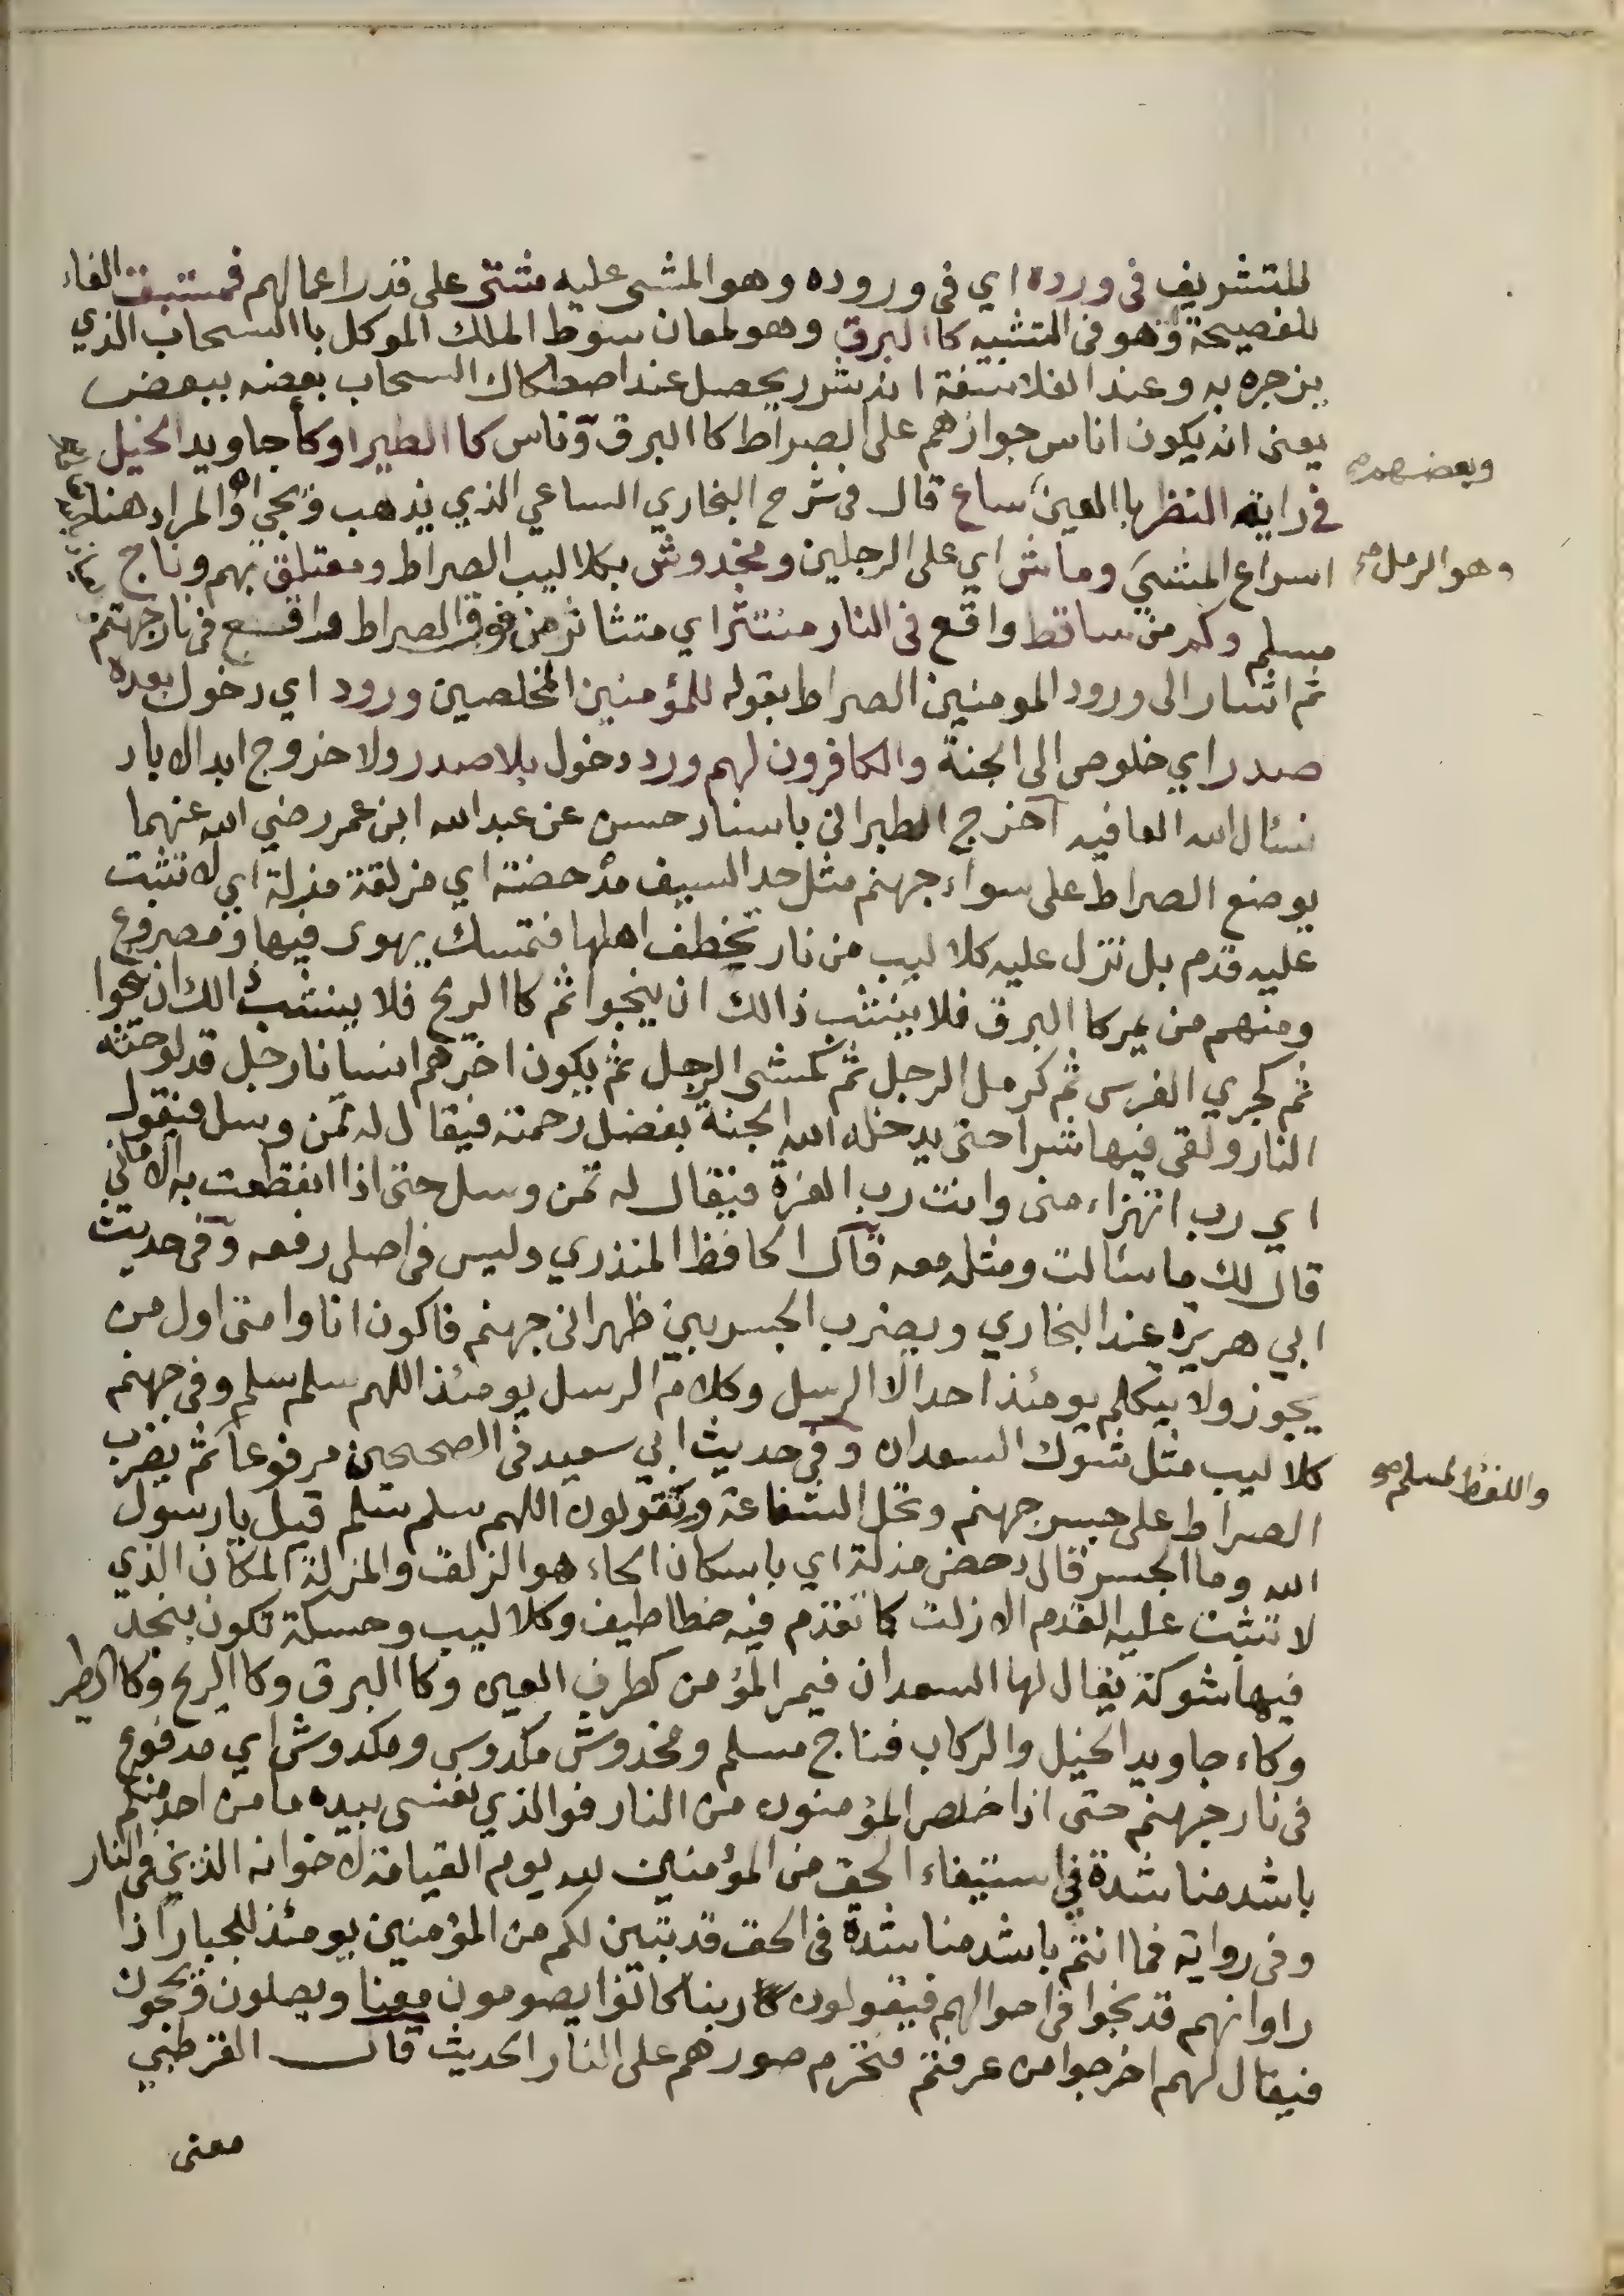 للتشريف فى ورده اي فى وروده وهو المشى عليه مشتى على قدر اعمالهم فمستبق الفاء
للفصيحة وهو فى التشبيه كا البرق وهو لمعان سوط الملك الموكل با السحاب الذي
يزجره به وعند الفلاسفة انه شرر يحصل عند اصطكاك السحاب بعضه ببعض
يعنى انه يكون اناس جوازهم على الصراط كا البرق وناس كا الطير او كأجاويد الخيل
وبعضهم صح
فى راية النظر با العين ساع قال فى شرح البخاري الساعي الذي يذهب ويجي والمراد هنا
اسراع المشي وماش اي على الرجلين ومخدوش بكلاليب الصراط ومعتلق بهم وناج
وهو الرمل صح
مسلم وكم من ساقط واقع فى النار منتثر اي متناثر من فوق الصراط واقع فى نار جهنم
ثم اشار الى ورود المومنين الصراط بقوله للمؤمنين المخلصين ورود اي دخول بعده
صدر اي خلوص الى الجنة والكافرون لهم ورد دخول بلا صدر ولا خروج ابد الاباد
نسئال الله العافيه آخرج الطبرانى باسناد حسن عن عبد الله ابن عمر رضي الله عنهما
يوضع الصراط على سواء جهنم مثل حد السيف مدحضة اي مزلقة مزلة اي لا تثبت
عليه قدم بل تزل عليه كلاليب من نار تخطف اهلها فتمسك يهوى فيها ومصروع
ومنهم من يمر كا البرق فلا ينشب ذالك ان ينجوا ثم كا الريح فلا ينشب ذالك ان ينجوا
ثم كجري الفرس ثم كرمل الرجل ثم كمشى الرجل ثم يكون اخرهم انسانا رجل قد لوحته
النار ولقى فيها شرا حتى يدخله الله الجنة بفضل رحمته فيقال له تمن وسل فيقول
اي رب اتهزاء منى وانت رب العزة فيقال له تمن وسل حتى اذا انقطعت به الامانى
قال لك ما سئالت ومثله معه قال الحافظ المنذري وليس فى اصلى رفعه وفى حديث
ابي هريرة عند البخاري ويضرب الجسر بين ظهرانى جهنم فاكون انا وامتى اول من
يجوز ولا يتكلم يومئذ احد الا الرسل وكلام الرسل يومئذ اللهم سلم سلم وفى جهنم
كلاليب مثل شوك السعدان وفى حديث ابي سعيد فى الصحيحين مرفوعا ثم يضرب
واللفظ لمسلم صح
الصراط على جسر جهنم وتحل الشفاعة ويقولون اللهم سلم سلم قيل يا رسول
الله وما الجسر قال دحض مزلة اي باسكان الحاء هو الزلق والمزلة المكان الذي
لا تثبت عليه القدم الا زلت كما تقدم فيه خطاطيف وكلاليب وحسكة تكون بنجد
فيها شوكة يقال لها السعدان فيمر المؤمن كطرف العين وكا البرق وكا الريح وكا الطير
وكاء جاويد الخيل والركاب فناج مسلم ومخدوش مكدوس ومكدوش اي مدفوع
فى نار جهنم حتى اذا خلص المؤمنون من النار فوالذي نفسى بيده ما من احد منكم
باشد مناشدة في استيفاء الحق من المؤمنين لله يوم القيامة لاخوانه الذين فى النار
وفى رواية فما انتم باشد مناشدة فى الحق قد تبين لكم من المؤمنين يومئذ للجبار اذا
راوا انهم قد نجوا فى احوالهم فيقولون ربنا كانوا يصومون معنا ويصلون ويحجون
فيقال لهم اخرجوا من عرفتم فتحرم صورهم على النار الحديث قال القرطبي
معنى